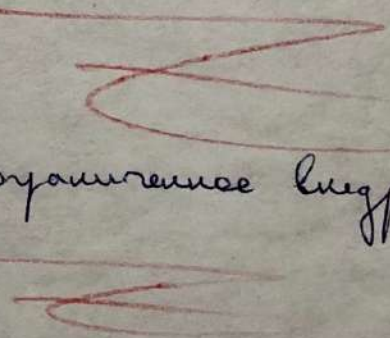 ограниченное внедр